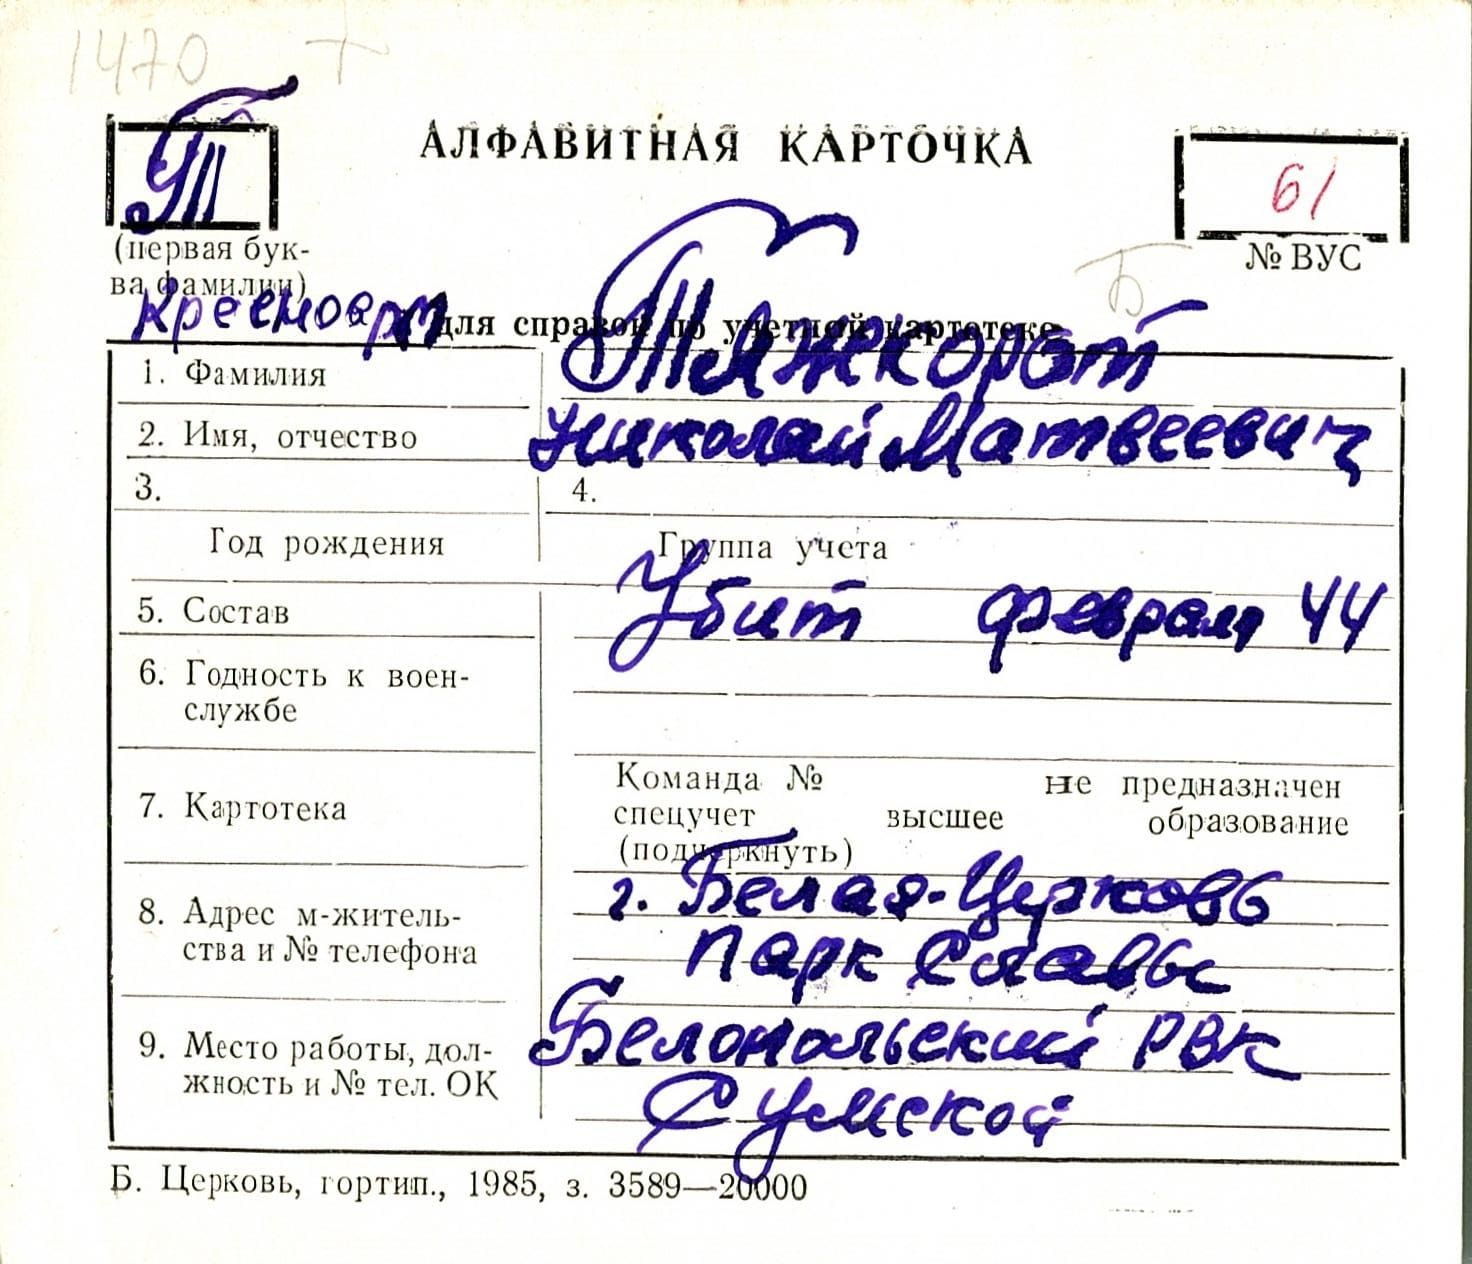 1470 Т
Т
АЛФАВИТНАЯ КАРТОЧКА
61
(первая бук-
ва фамилии)
№ ВУС
Б
Кр-ец
для справок по учетной картотеке
1. Фамилия Тяжкороб
2. Имя, отчество Николай Матвеевич
3. 4.
Год рождения Группа учета
5. Состав Убит февраля 44
6. Годность к воен-
службе
7. Картотека
Команда № не предназначен
спецучет высшее образование
(подчеркнуть)
8. Адрес м-житель-
ства и № телефона
г. Белая-Церковь
Парк Славы
9. Место работы, дол-
жность и № тел. ОК
Белопольский РВК
Сумской
Б. Церковь, гортип., 1985, з. 3589—20000